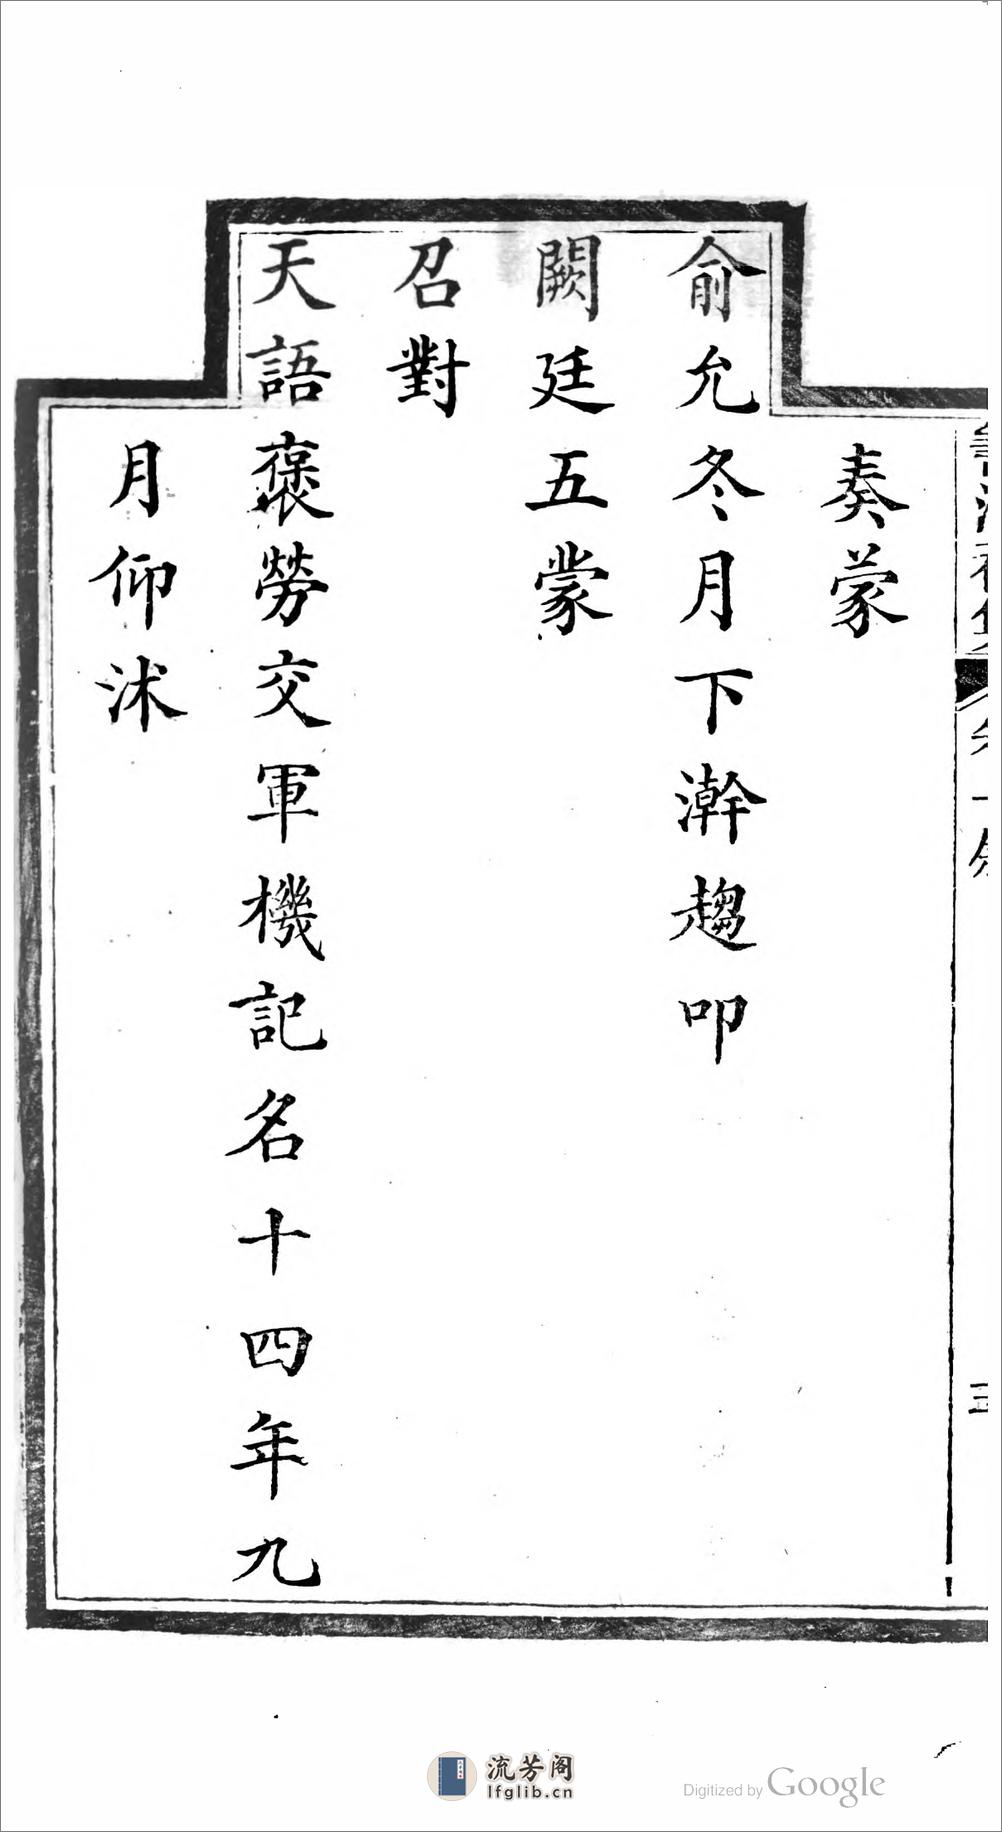 奏蒙
俞允冬月下澣趨叩
闕廷五蒙
召對
天語褒勞交軍機記名十四年九
月仰沐
流芳阁
lfglib.cn
Digitized by Google